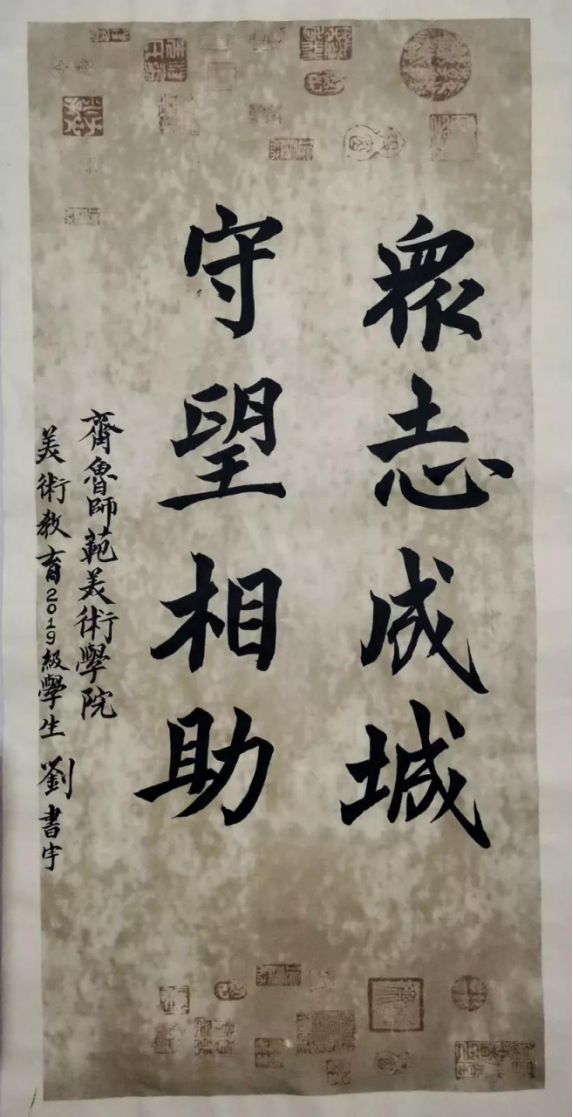 眾志成城
守望相助
齊魯師範美術學院
美術教育2019級學生 劉書宇